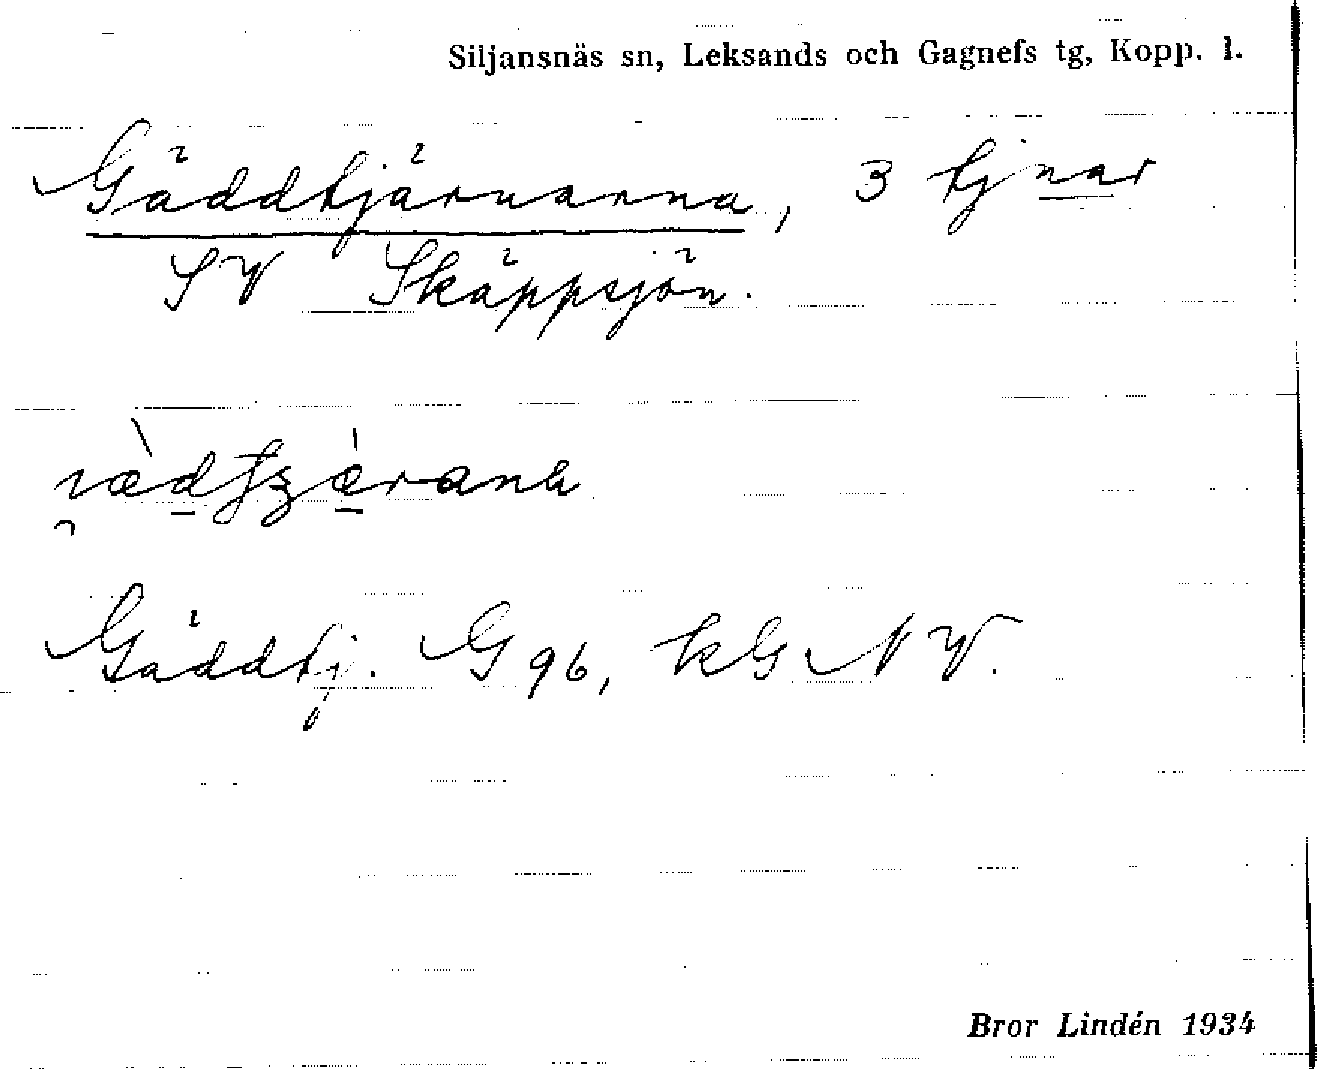 Siljansnäs sn, Leksands och Gagnefs tg, Kopp. l.
Gäddtjärnarna, 3 tjnar
SV Skäppsjön.
Gäddtj. G 96, kG NV.
Bror Lindén 1934